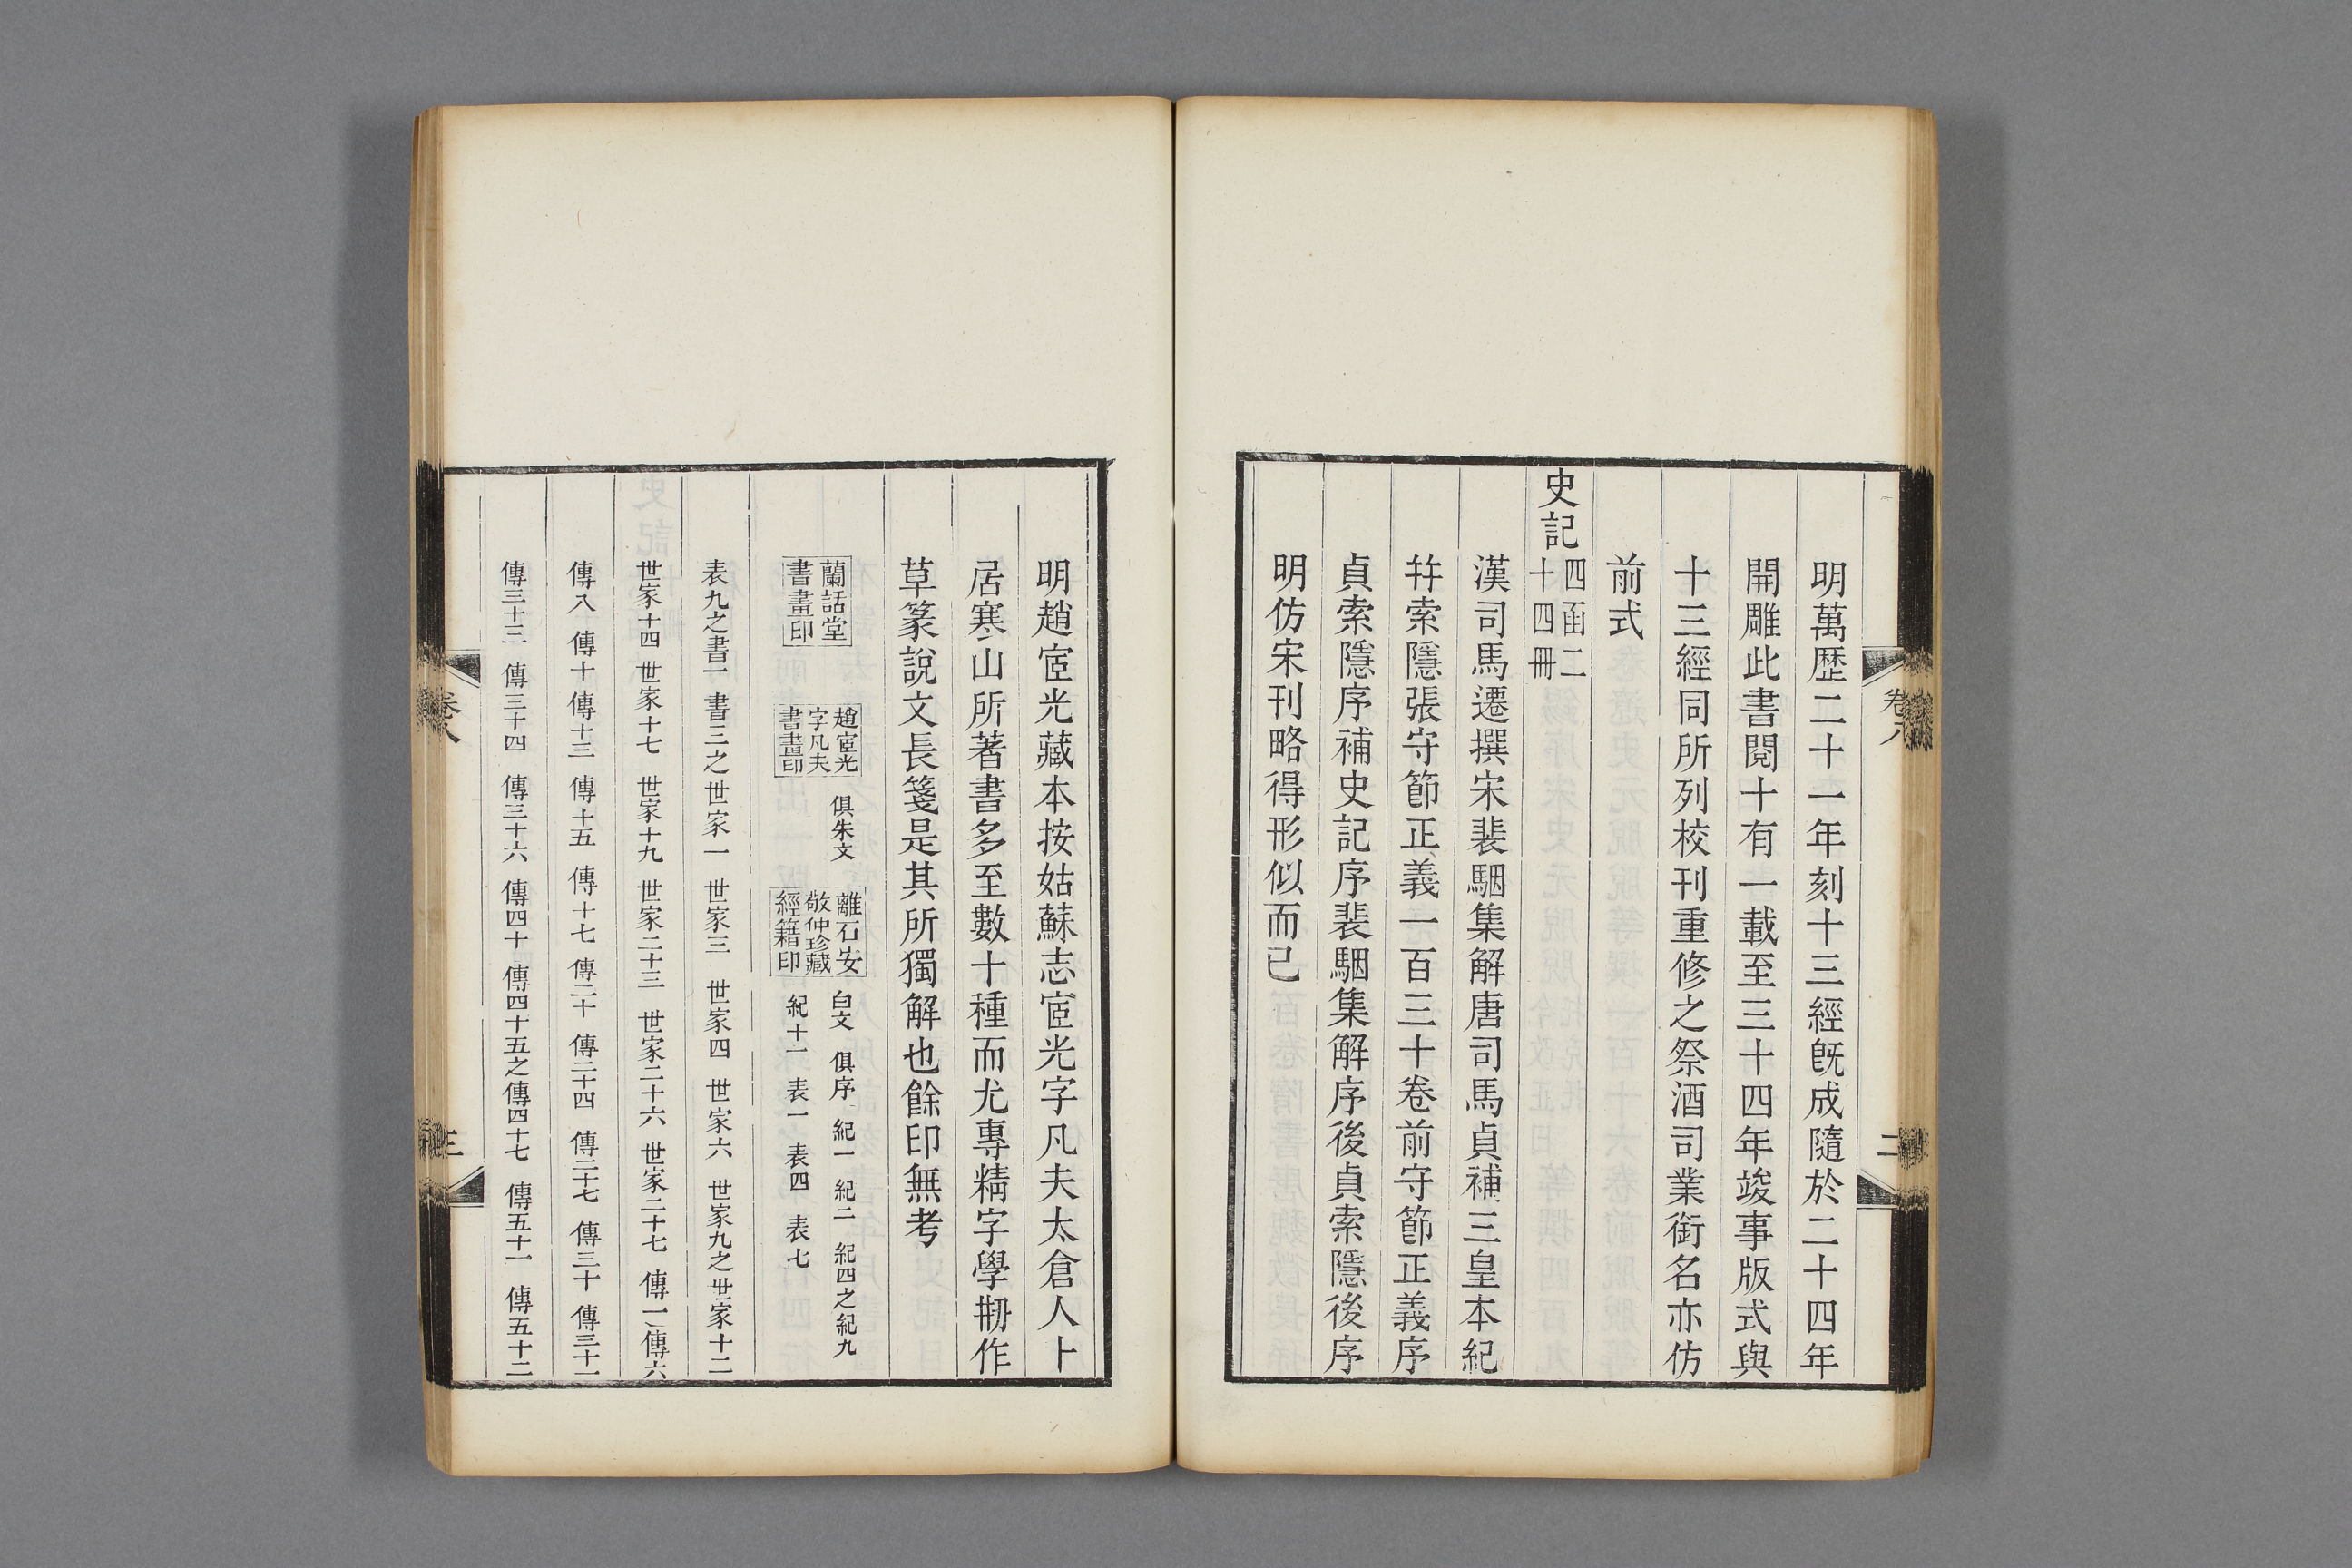 明萬歴二十一年刻十三經旣成隨於二十四年
開雕此書閱十有一載至三十四年竣事版式與
十三經同所列校刊重修之祭酒司業銜名亦仿
前式
史記四函二十四冊
漢司馬遷撰宋裴駰集解唐司馬貞補三皇本紀
幷索隱張守節正義一百三十卷前守節正義序
貞索隱序補史記序裴駰集解序後貞索隱後序
明仿宋刊略得形似而已
卷八
二
明趙宧光藏本按姑蘇志宧光字凡夫太倉人卜
居寒山所著書多至數十種而尤專精字學刱作
草篆說文長箋是其所獨解也餘印無考
蘭話堂書畫印 趙宧光字凡夫書畫印 俱朱文 離石安敬仲珍藏經籍印 白文 俱序 紀一 紀二 紀四之紀九 紀十一 表一 表四 表七
表九之書一 書三之世家一 世家三 世家四 世家六 世家九之世家十二
世家十四 世家十七 世家十九 世家二十三 世家二十六 世家二十七 傳一 傳六
傳八 傳十 傳十三 傳十五 傳十七 傳二十 傳二十四 傳二十七 傳三十 傳三十一
傳三十三 傳三十四 傳三十六 傳四十 傳四十五之傳四十七 傳五十一 傳五十二
卷八
三